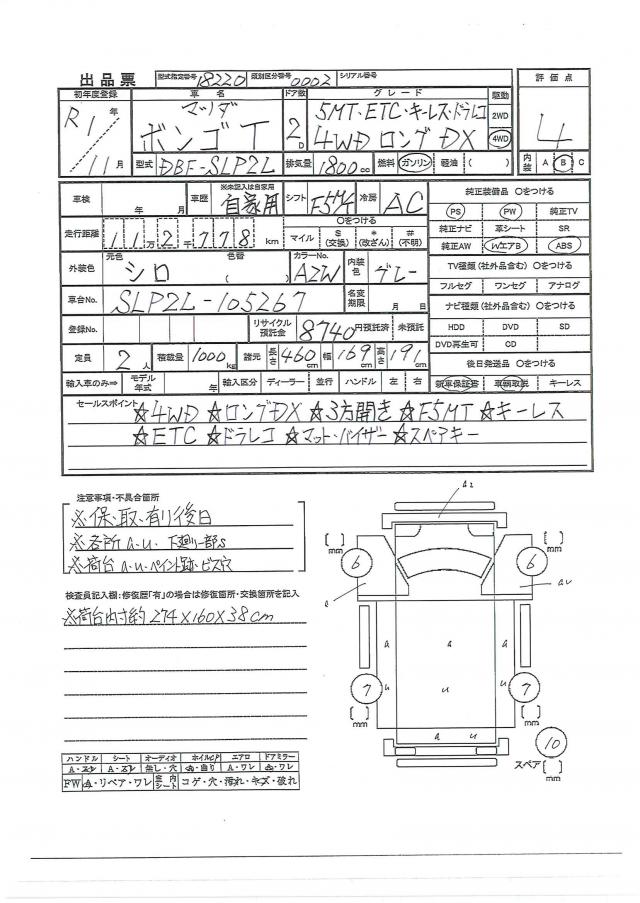 出品票 型式指定番号 18220 類別区分番号 0002 シリアル番号
初年度登録 車名 ドア数 グレード 駆動 評価点
R1年 マツダ 5MT・ETC・キーレス・ドラレコ 2WD
ボンゴT 2D 4WD ロングDX 4WD 4
11月 型式 DBF-SLP2L 排気量 1800cc 燃料 ガソリン 軽油 ( ) 内装 A B C
車検 年 月 車歴 ※未記入は自家用 自家用 シフト F5MT 冷房 AC 純正装備品 ○をつける
PS PW 純正TV
走行距離 11万2千778km ○をつける マイル $(交換) *(改ざん) #(不明) 純正ナビ 革シート SR
純正AW WエアB ABS
外装色 元色 シロ 色替 ( ) カラーNo. A2W 内装色 グレー TV種類(社外品含む) ○をつける
フルセグ ワンセグ アナログ
車台No. SLP2L-105267 名変期限 月 日 ナビ種類(社外品含む) ○をつける
登録No. リサイクル預託金 8740円預託済 未預託 HDD DVD SD
DVD再生可 CD
定員 2人 積載量 1000KG 諸元 長さ 460cm 幅 169cm 高さ 191cm 後日発送品 ○をつける
輸入車のみ⇒ モデル年式 年 輸入区分 ディーラー 並行 ハンドル 左 右 新車保証書 車輌取説 キーレス
セールスポイント ☆4WD ☆ロングDX ☆3方開き ☆F5MT ☆キーレス
☆ETC ☆ドラレコ ☆マット・バイザー ☆スペアキー
注意事項・不具合箇所
※保、取、有り後日
※各所a.u. 下廻り一部s
※荷台a.u.ペイント跡・ビス穴
検査員記入欄:修復歴「有」の場合は修復箇所・交換箇所を記入
※荷台内寸約274×160×38cm
ハンドル シート オーディオ ホイルCP エアロ ドアミラー
A・スレ A・スレ 無し・穴 曲り A・ワレ ワレ
FW リペア・ワレ 室内シート コゲ・穴・汚れ・キズ・破れ
a2
[ ]mm [ ]mm
6 6
a au
a a
7 u u u 7
[ ]mm a u [ ]mm
10
スペア [ ]mm